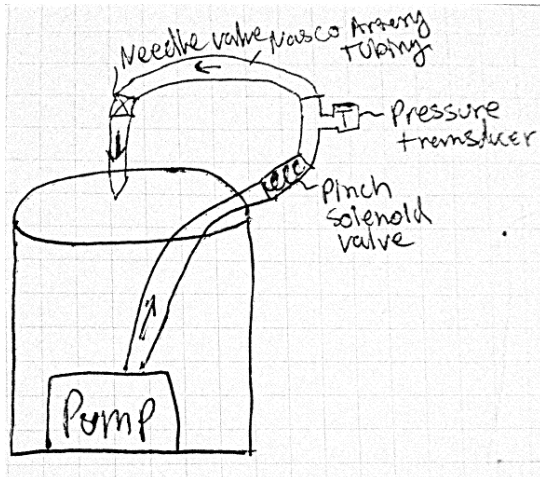 Needle valve
Nasco Artery
Tubing
Pressure
transducer
Pinch
Solenoid
valve
Pump